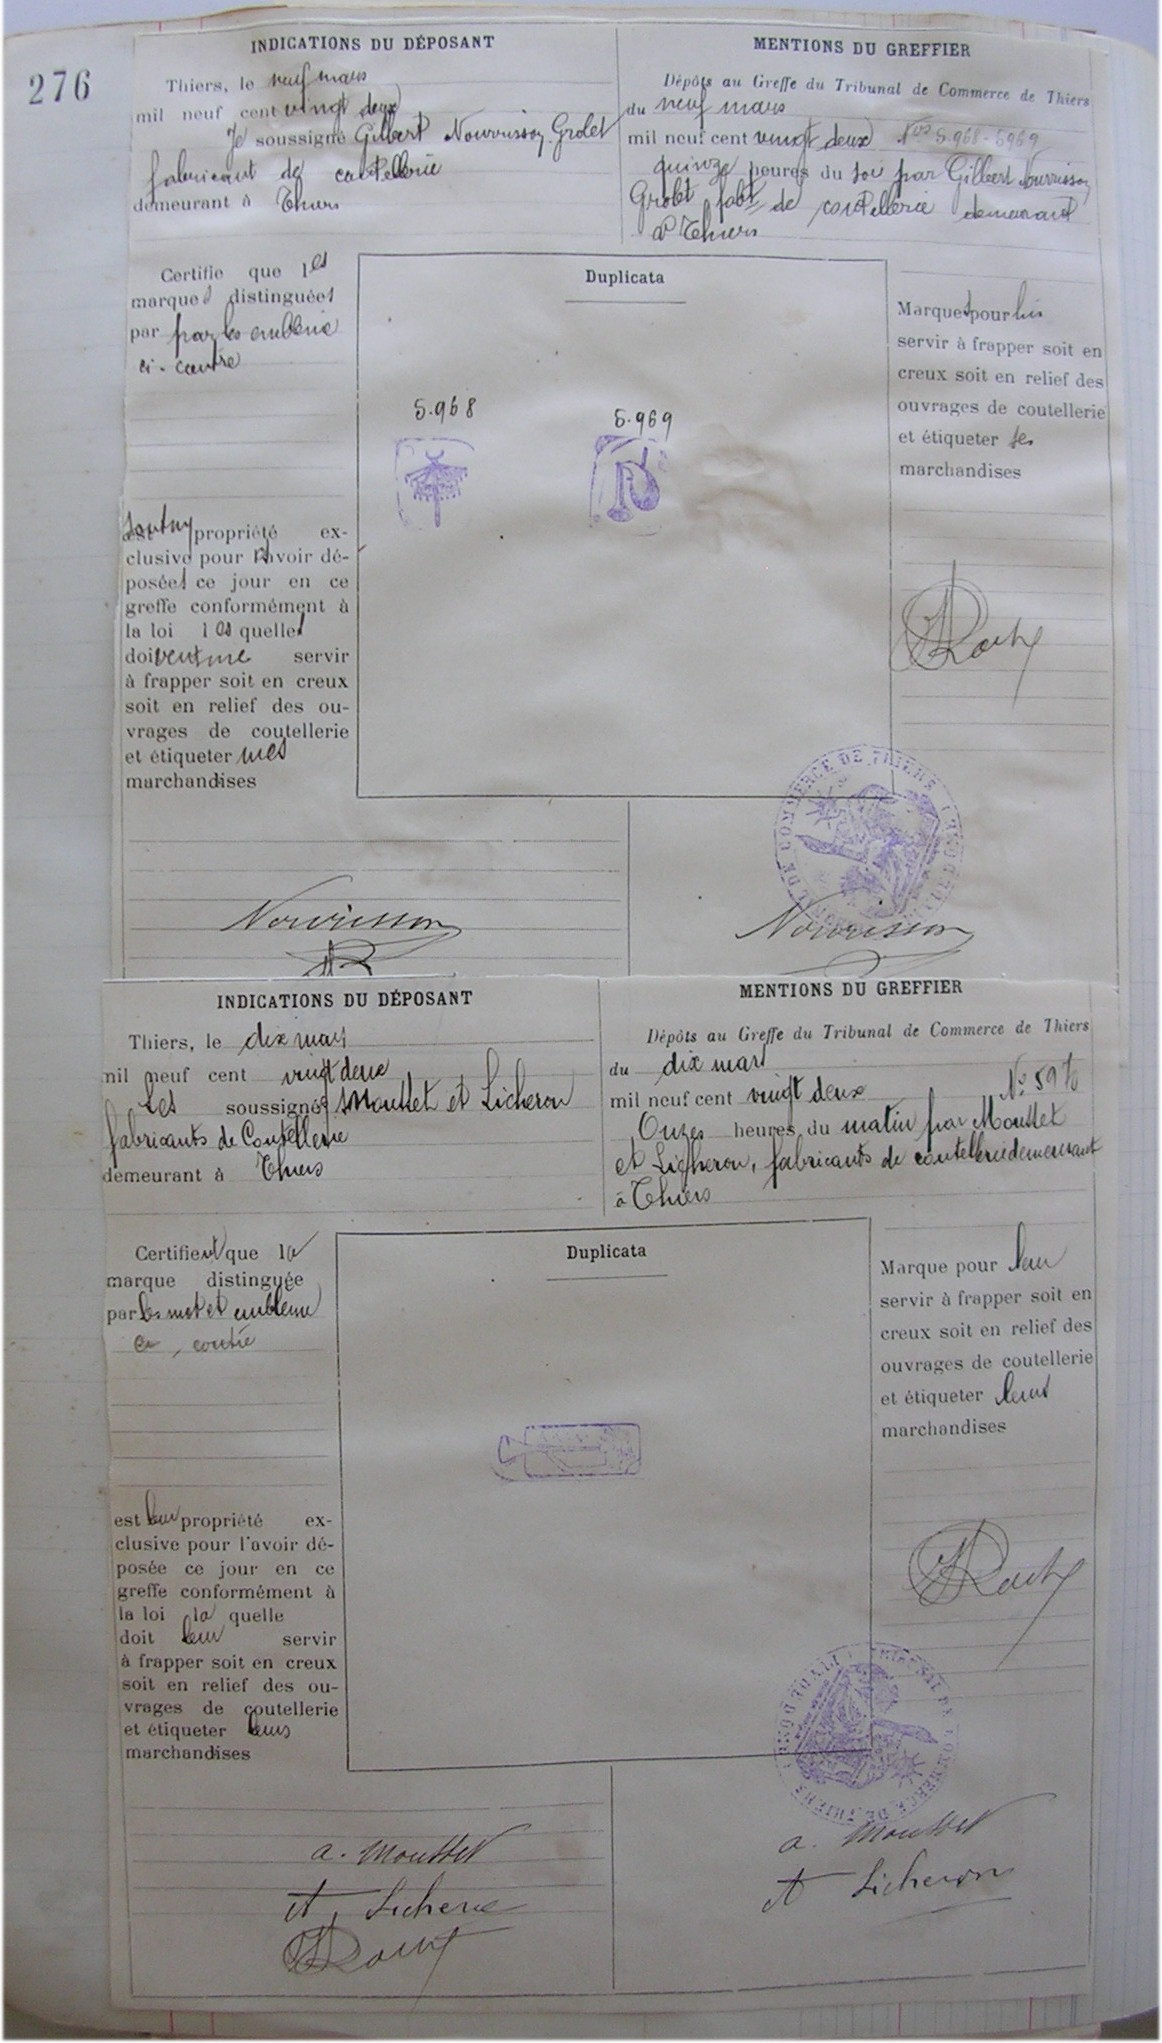 276
INDICATIONS DU DÉPOSANT
Thiers, le neuf mars
mil neuf cent vingt deux
Je soussigné Gilbert Nourrisson Grolet
fabricant de coutellerie
demeurant à Thiers
MENTIONS DU GREFFIER
Dépôts au Greffe du Tribunal de Commerce de Thiers
du neuf mars
mil neuf cent vingt deux Nos 5.968-5969
quinze heures du soir par Gilbert Nourrisson
Grolet fabt de coutellerie demeurant
à Thiers
Certifie que les
marques distinguées
par par les emblème
ci-contre
sont ma propriété ex-
clusive pour l'avoir dé-
posées ce jour en ce
greffe conformément à
la loi les quelles
doivent me servir
à frapper soit en creux
soit en relief des ou-
vrages de coutellerie
et étiqueter mes
marchandises
Duplicata
5.968
5.969
Marques pour lui
servir à frapper soit en
creux soit en relief des
ouvrages de coutellerie
et étiqueter ses
marchandises
TRIBUNAL DE COMMERCE DE THIERS
Nourrisson
Nourrisson
INDICATIONS DU DÉPOSANT
Thiers, le dix mars
mil neuf cent vingt deux
Les soussignés Mousset et Licheron
fabricants de Coutellerie
demeurant à Thiers
MENTIONS DU GREFFIER
Dépôts au Greffe du Tribunal de Commerce de Thiers
du dix mars
mil neuf cent vingt deux No 5970
Onzes heures du matin par Mousset
et Licheron, fabricants de coutellerie demeurant
à Thiers
Certifient que la
marque distinguée
par les mot et emblème
ci, contre
est leur propriété ex-
clusive pour l'avoir dé-
posée ce jour en ce
greffe conformément à
la loi la quelle
doit leur servir
à frapper soit en creux
soit en relief des ou-
vrages de coutellerie
et étiqueter leurs
marchandises
Duplicata
Marque pour leur
servir à frapper soit en
creux soit en relief des
ouvrages de coutellerie
et étiqueter leurs
marchandises
TRIBUNAL DE COMMERCE DE THIERS
a. Mousset
et Licheron
a. Mousset
et Licheron